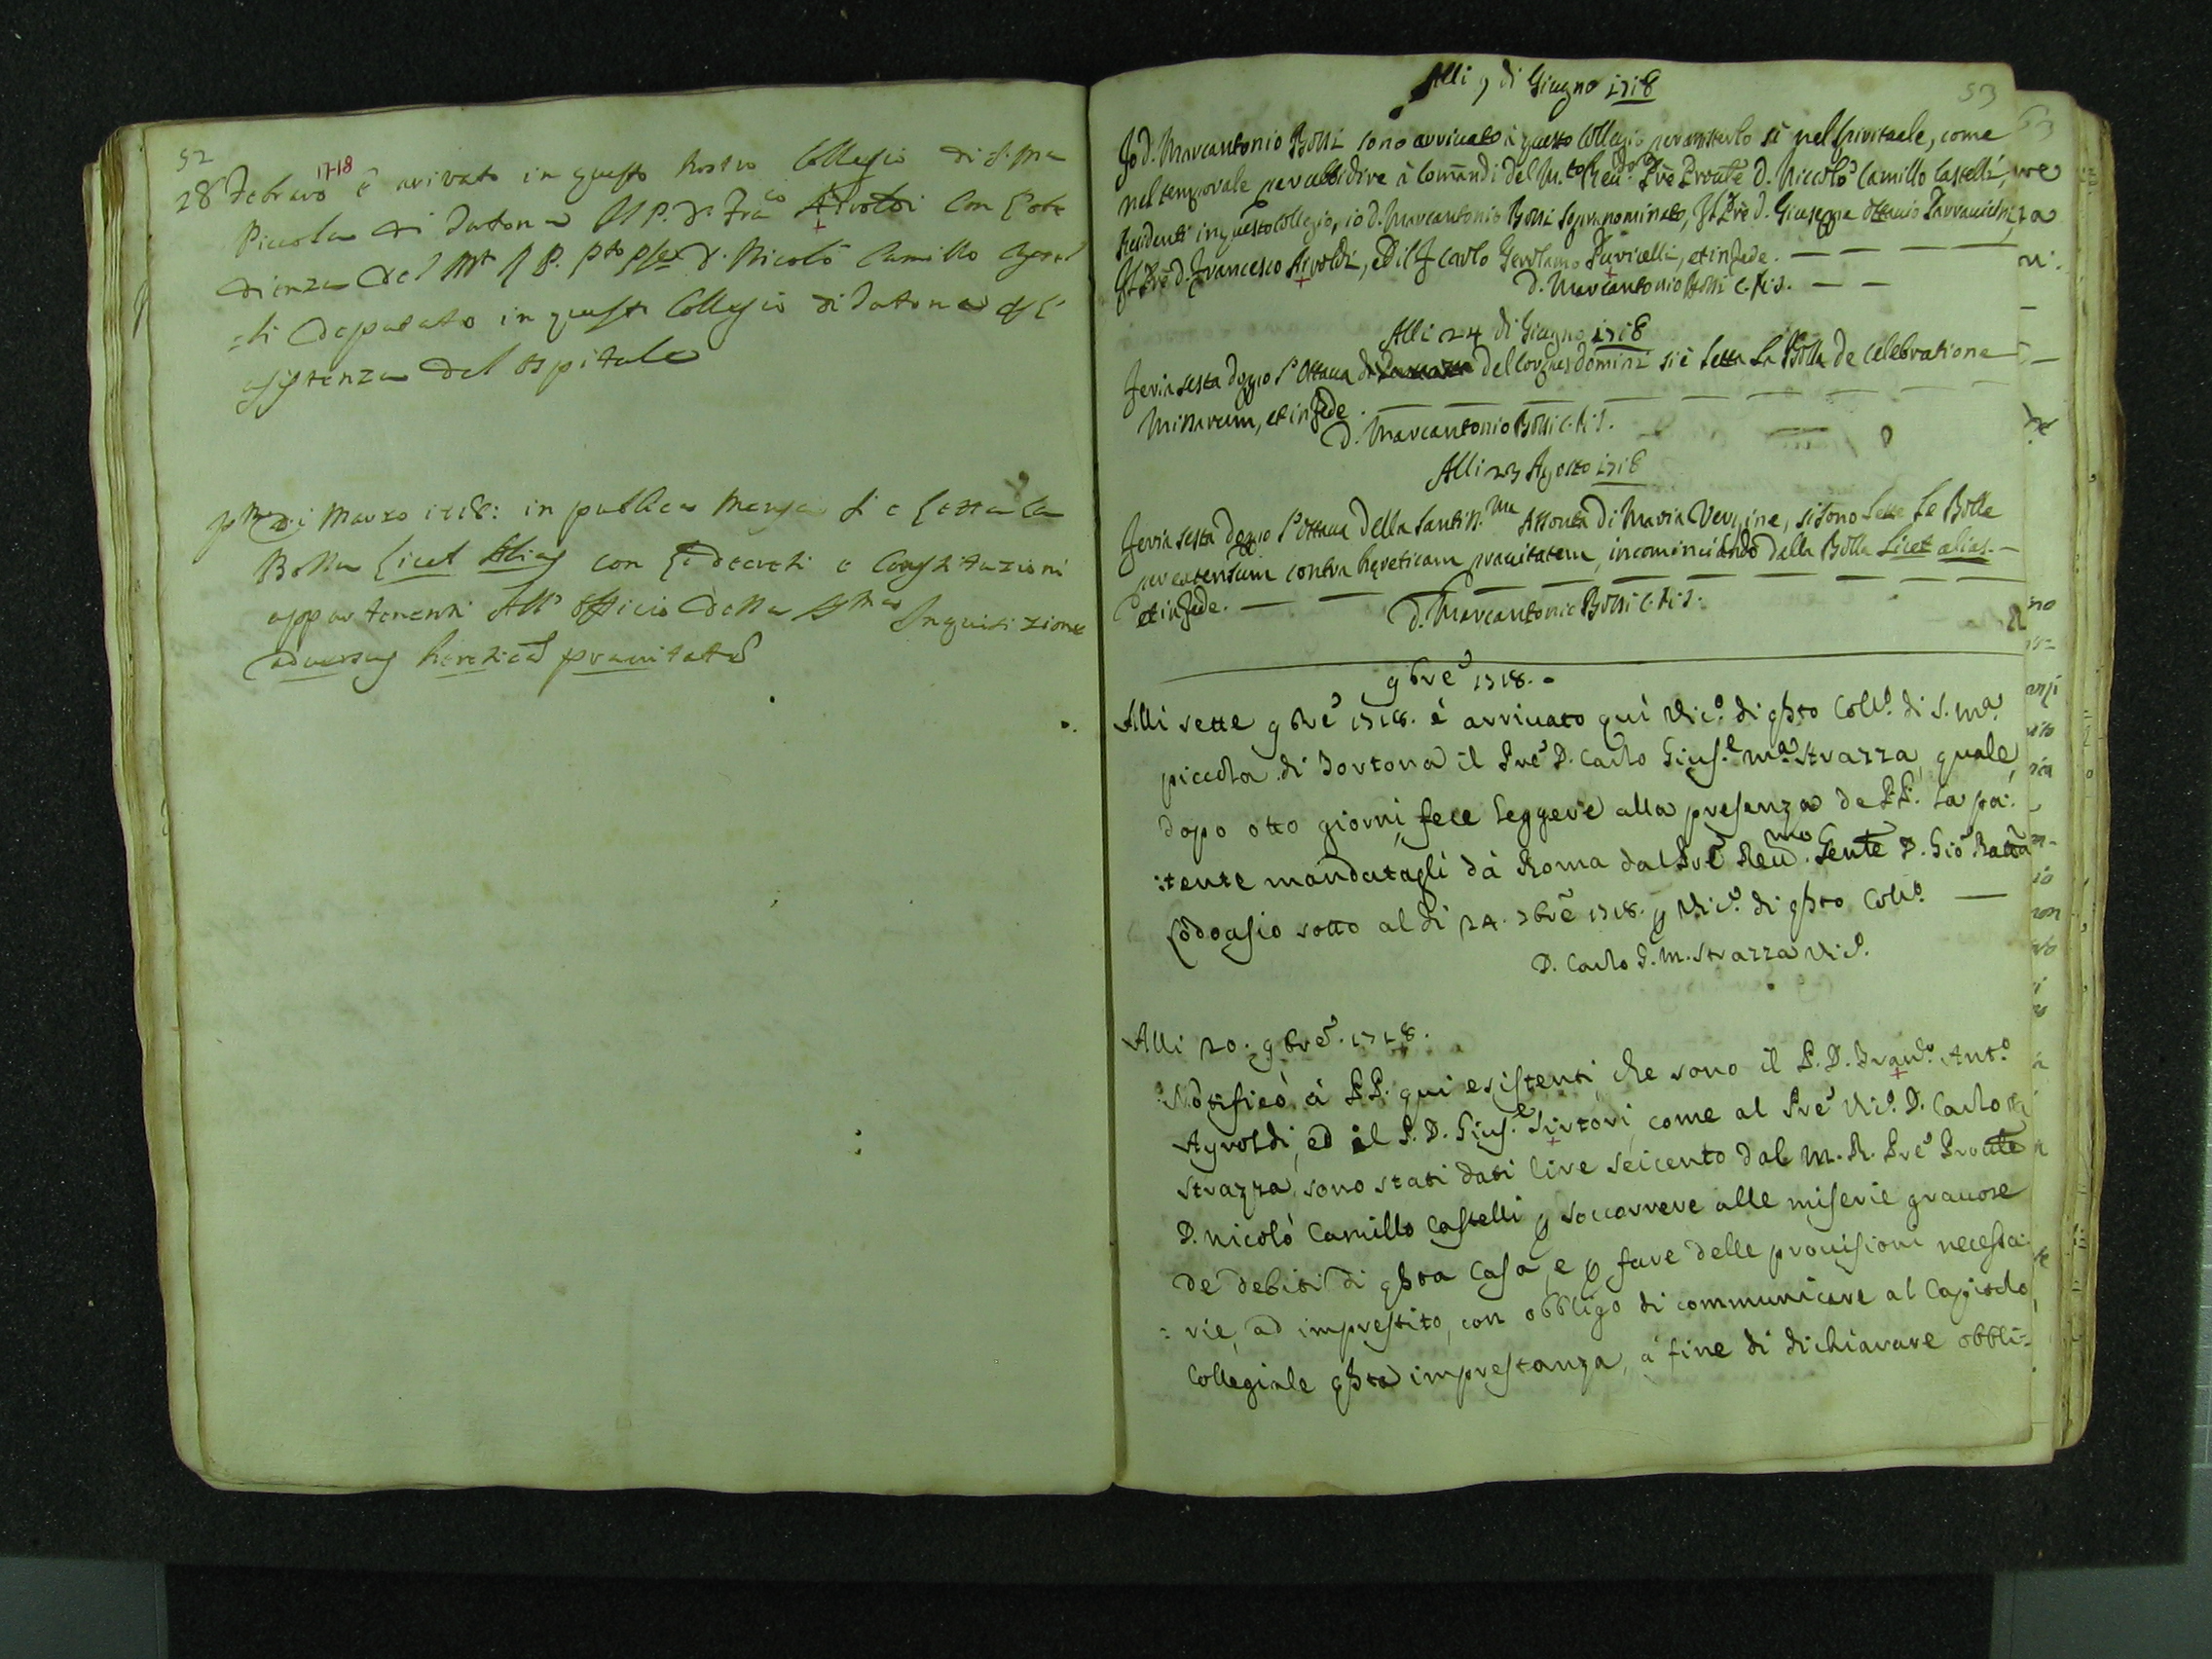 52
1718
28 Febraro è arivato in questo nostro Collegio di S. Ma
Piccola di Datona Il P. D. Fraco Airoldi Con l'obe
dienza del Mto R P. Pto D. Nicolò Camillo Castel
=li deputato in questo Collegio di Datona
asistenza del Ospitale
di Marzo 1718: in publica Mensa si è lettta la
Bolla Licet Alias con li decreti e Constitazioni
appartenenti All' officio della Sma Inquisizione
adversus hereticã pravitatẽ
53
Alli 9 di Giugno 1718
Io D. Marcantonio Bossi sono arrivato à questo Collegio per assisterlo sì nel spirituale, come
nel temporale per ubbidire à Comãndi del M.to Reudo Prẽ Proũle D. Niccolò Camillo Castelli,
Residenti in questo Collegio, io D. Marcantonio Bossi sopranominato, Il Prẽ D. Giuseppe Ottavio
Il Prẽ D. Francesco Airoldi, ed il F Carlo Gerolamo Puricelli, et in fede. — — — —
D. Marcantonio Bossi C. R. S. — —
Alli 24 di Giugno 1718
Feria sesta doppo l'Ottava di del Corpus Domini si è letta la Bolla de Celebratione
Missarum, et in fede. — — — — — — —
D. Marcantonio Bossi C. R. S.
Alli 23 Agosto 1718
Feria sesta doppo l'Ottava della Santiss.ma Assonta di Maria Vergine, si sono lette le Bolle
per extensum contra hęreticam pravitatem, incominciando dalla Bolla Licet alias. —
et in fede. — — — — — — — — —
D. Marcantonio Bossi C. R. S.
9bre 1718.
Alli sette 9bre 1718. è arrivato quì Vic.o di qsto Coll.o di S. Ma
piccola di Tortona il Prẽ D. Carlo Gius.e Ma Strazza, quale
dopo otto giorni fece leggere alla presenza de PP. la pa:
:tente mandatagli dà Roma dal Prẽ Reũ.mo Gente D. Gio Batta
Lodoasio sotto al di 24. 7bre 1718. p Vic.o di qsto Coll.o —
D. Carlo G. M. Strazza Vic.o
Alli 20. 9bre. 1718.
Notificò à PP. qui esistenti, che sono il P. D. Franc.o Ant.o
Ayroldi, ed il P. D. Gius.e Sirtori, come al Prẽ Vic.o D. Carlo
Strazza, sono stati dati lire seicento dal M. R. Prẽ Proũle
D. Nicolò Camillo Castelli p soccorrere alle miserie gravose
de debiti di qsta Casa, e p fare delle provisioni necessa:
:rie, ad imprestito, con obbligo di communicare al Capitolo
Collegiale qsta imprestanza, à fine di dichiarare obbli=